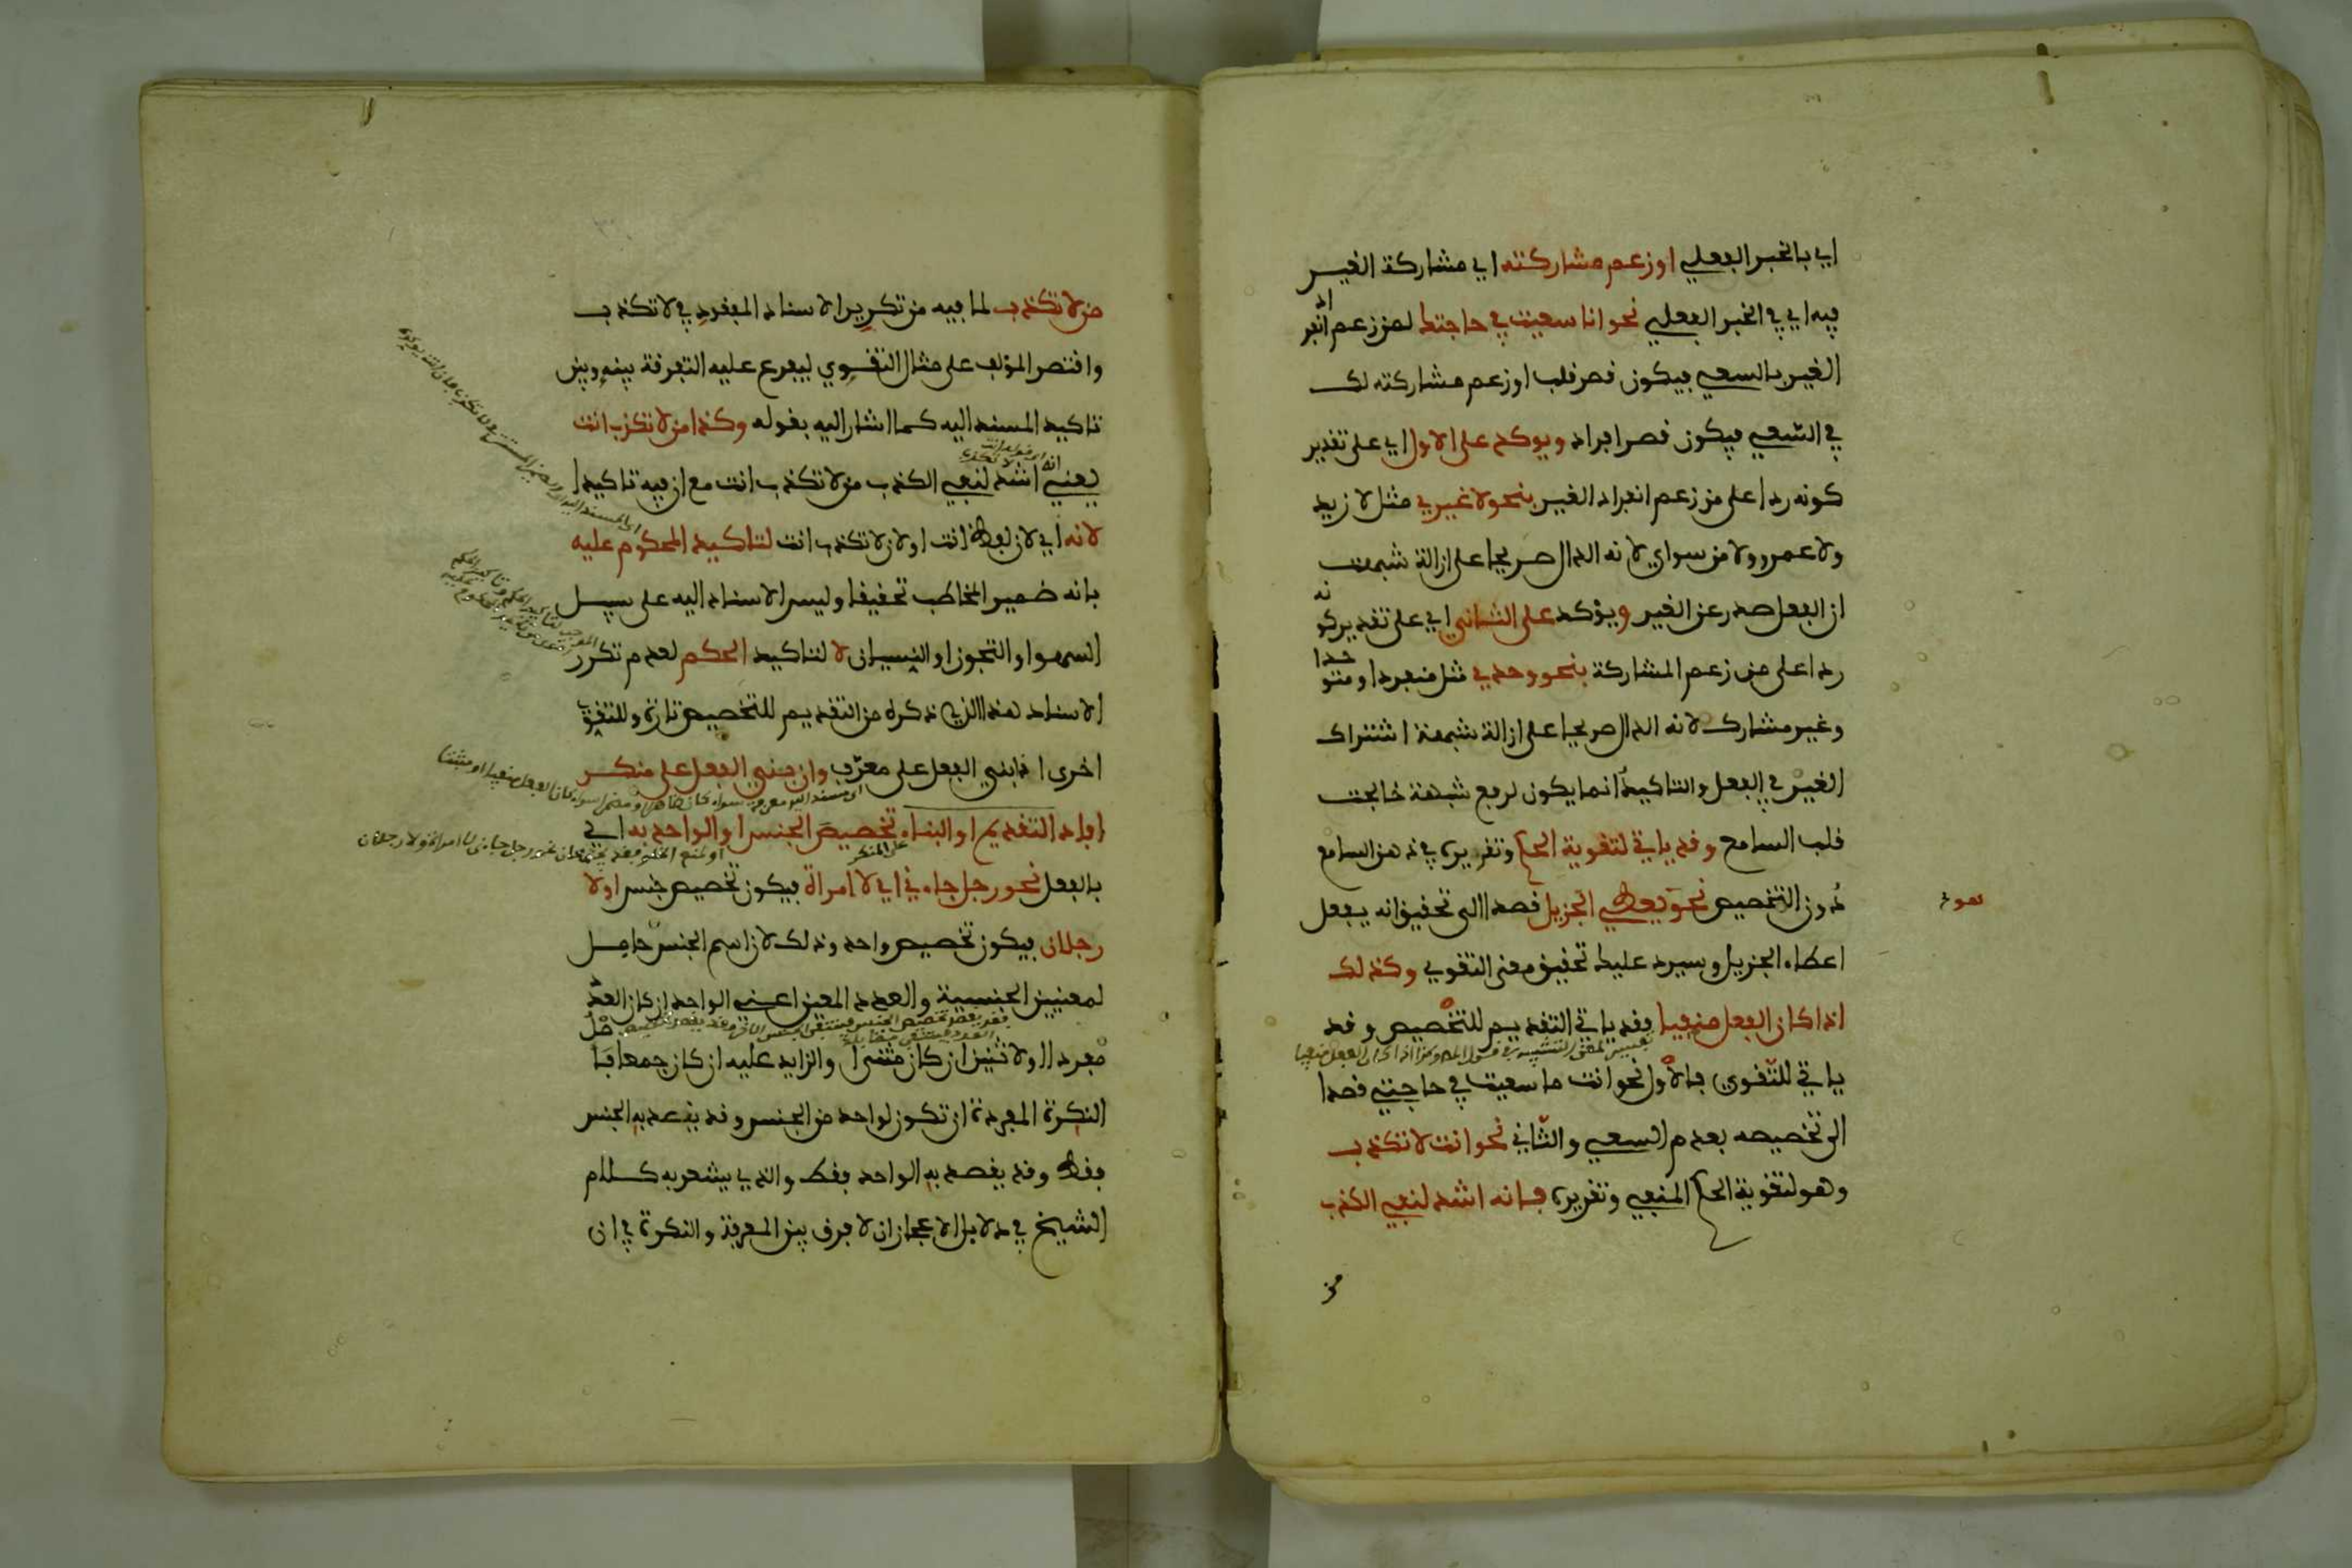 اي بالخبر الفعلي او زعم مشاركته اي مشاركة الغير
فيه اي في الخبر الفعلي نحو انا سعيت في حاجتك لمن زعم انفراد
الغير بالسعي فيكون قصر قلب او زعم مشاركته لك
في السّعي فيكون قصر افراد ويوكد على الاول اي على تقدير
كونه ردا على من زعم انفراد الغير بنحو لا غيري مثل لا زيد
ولا عمرو ولا من سواي لانه الدال صريحا على ازالة شبهت
ان الفعل صدر عن الغير ويؤكد على الثاني اي على تقدير كونه
ردا على من زعم المشاركة بنحو وحدي مثل منفردا او متوحدا
وغير مشارك لانه الدال صريحا على ازالة شبهة اشتراك
الغير في الفعل والتاكيد انما يكون لرفع شبهة خالجت
قلب السامع وقد ياتي لتقوية الحكم وتقريره في ذهن السامع
دون التخصيص نحو يعطي الجزيل قصدا الى تحقيق انه يفعل
هو
اعطاء الجزيل وسيرد عليك تحقيق معنى التقوي وكذلك
اذا كان الفعل منفيا فقد ياتي التقديم للتخصيص وقد
ياتي للتّقوي فالاول نحو انت ما سعيت في حاجتي قصدا
الى تخصيصه بعدم السعي والثّاني نحو انت لا تكذب
وهو لتقوية الحكم المنفي وتقريره فانه اشد لنفي الكذب
من
من لا تكذب لما فيه من تكرير الاسناد المفقود في لا تكذب
واقتصر المؤلف على مثال التقوي ليفرع عليه التفرقة بينه وبين
تاكيد المسند اليه كما اشار اليه بقوله وكذا من لا تكذب انت
يعني انه اشد لنفي الكذب من لا تكذب انت مع ان فيه تاكيدا
لانه اي لان لفظ انت او لان لا تكذب انت لتاكيد المحكوم عليه
بانه ضمير المخاطب تحقيقا وليس الاسناد اليه على سبيل
السهو او التجوز او النسيان لا لتاكيد الحكم لعدم تكرر
الاسناد هذا الذي ذكراه من التقديم للتخصيص تارة وللتقوي
اخرى اذا بني الفعل على معرّف وان بني الفعل على منكر
افاد التقديم او البناء تخصيص الجنس او الواحد به اي
على المنكر
بالفعل نحو رجل جاءني اي لا امراة فيكون تخصيص جنس او لا
رجلان فيكون تخصيص واحد وذلك لان اسم الجنس حامل
لمعنيين الجنسية والعدد المعين اعني الواحد ان كان
مفردا او الاثنين ان كان مثنى او الزايد عليه ان كان جمعا فاصل
النكرة المفردة ان تكون لواحد من الجنس وقد يقصد به الجنس
فقط وقد يقصد به الواحد فقط والذي يشعر به كلام
الشيخ في دلايل الاعجاز ان لا فرق بين المعرفة والنكرة في ان